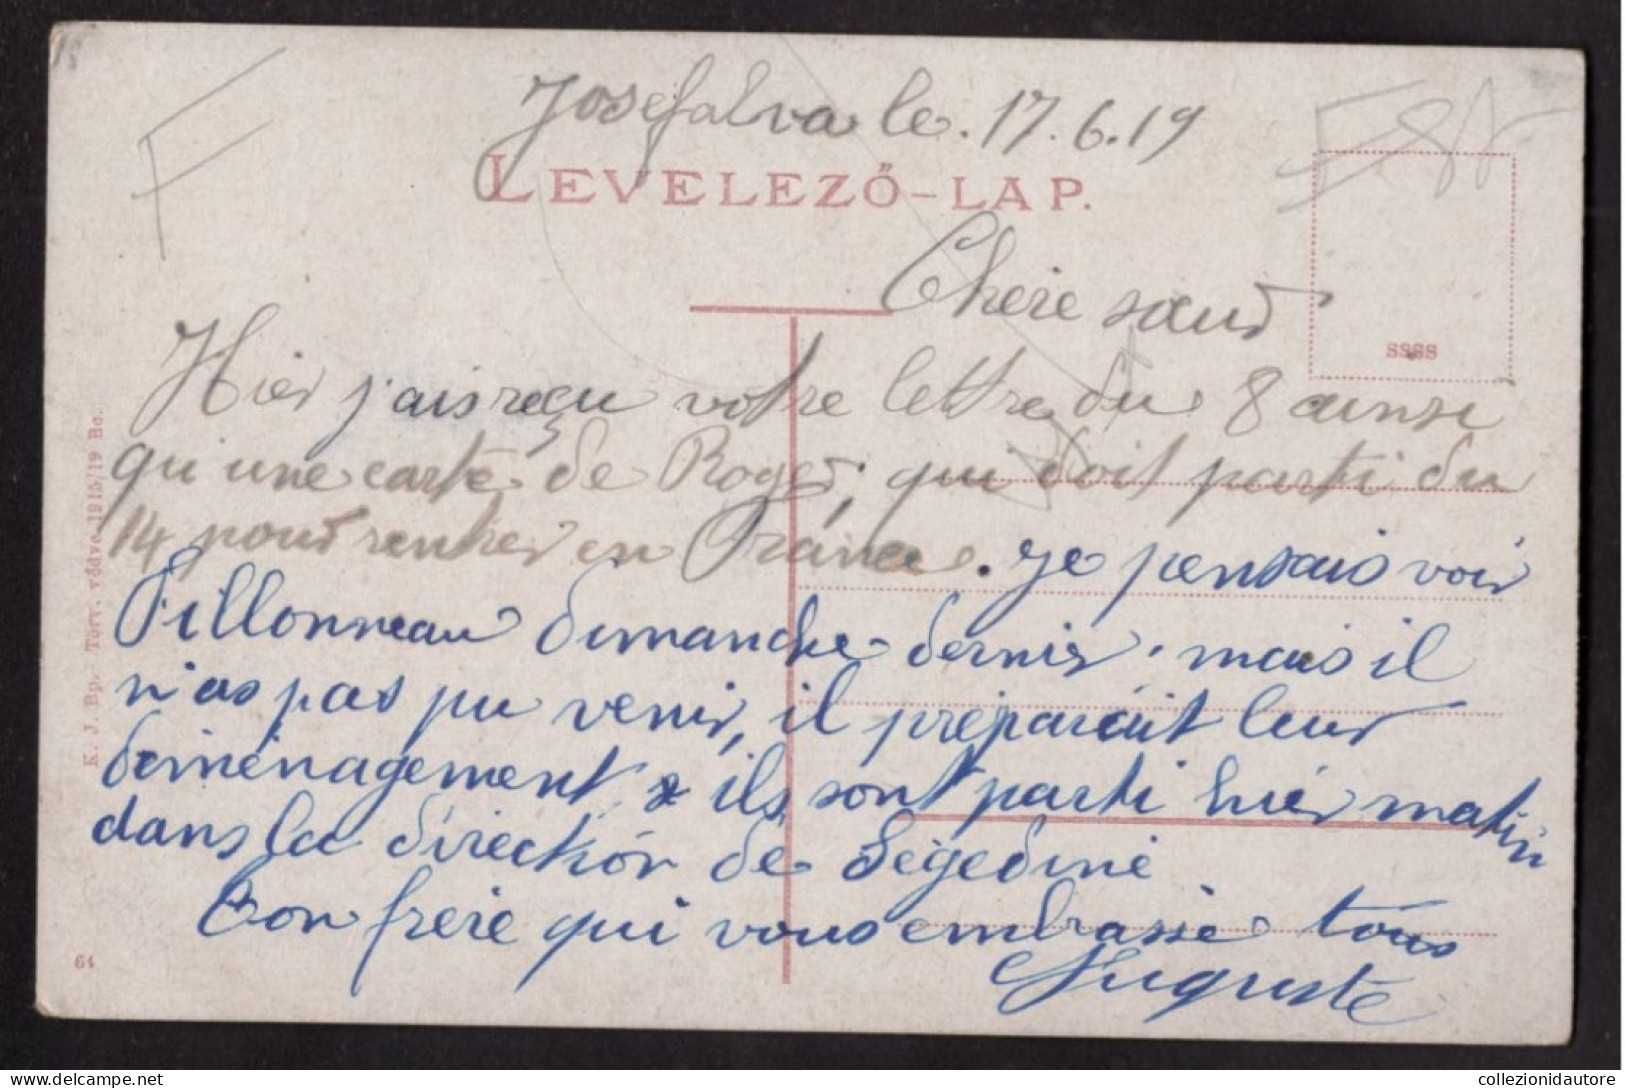 F
Josefalva le. 17.6.19
LEVELEZŐ-LAP.
Chère sœur
ssss
Hier j'ais reçu votre lettre du 8 ainsi
qu'une carte de Roger, qui doit parti du
14 pour rentrer en France. Je pensais voir
Pillonneau dimanche dernier. mais il
n'as pas pu venir, il préparait leur
deménagement & ils sont parti hier matin
dans la direction de Ségédine
Ton frère qui vous embrasse tous
Auguste
K. J. Bp. Törv. védve. 1915/19 Bc.
64
collezionidautore